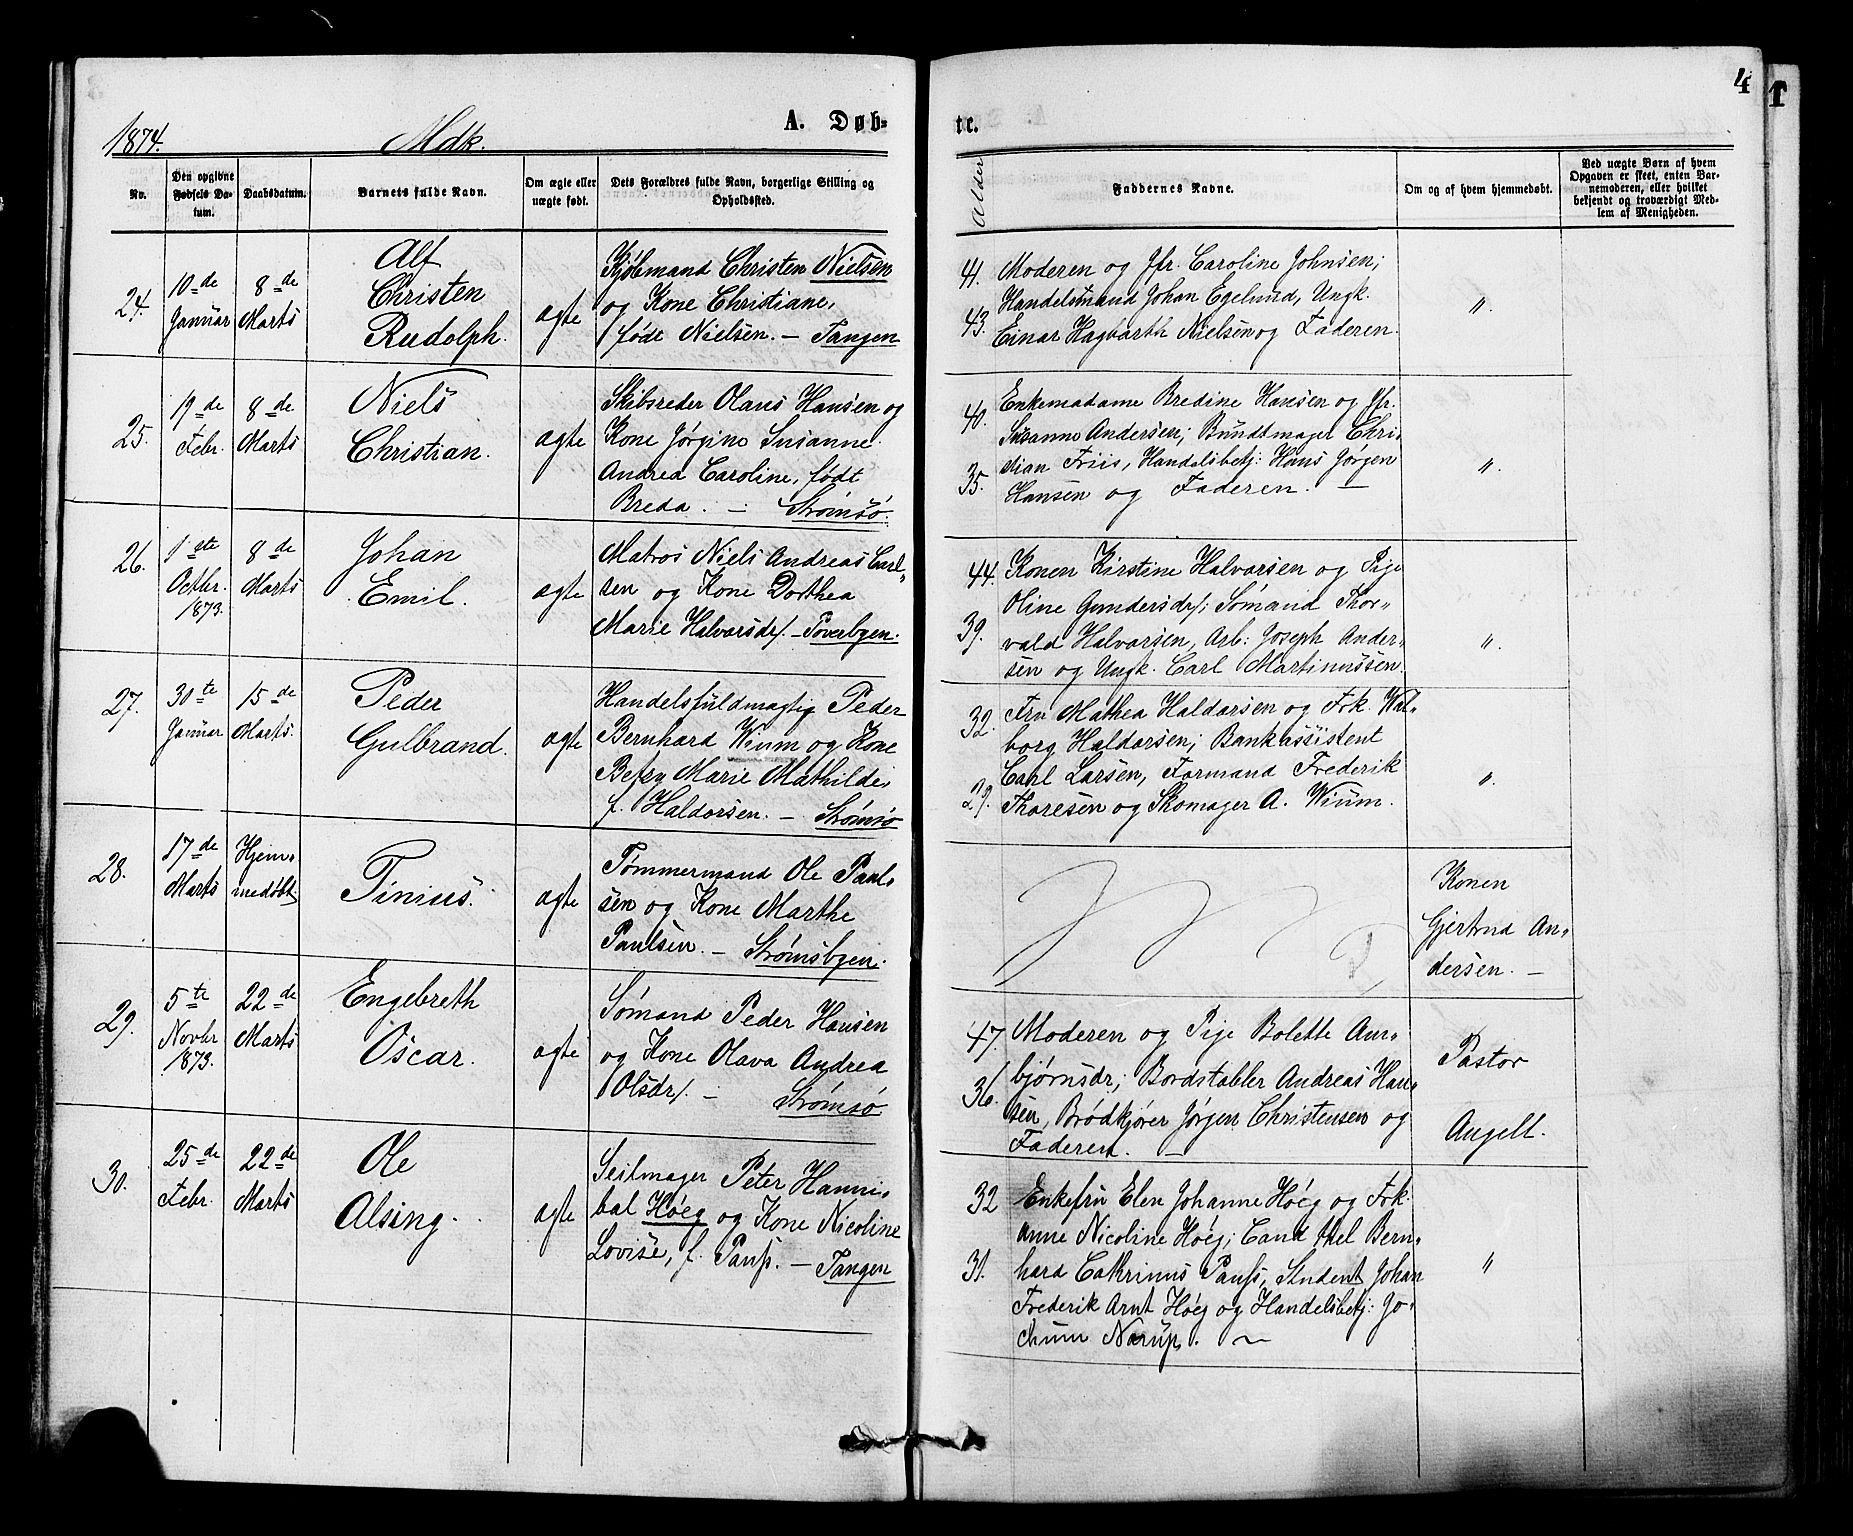 4
1
1874. Mdk. A. Døb- te.
Nr.
Den opgivne Fødsels Da-
tum.
Daabsdatum.
Barnets fulde Navn.
Om ægte eller
uægte født.
Dets Forældres fulde Navn, borgerlige Stilling og
Opholdssted.
Alder
Faddernes Navne.
Om og af hvem hjemmedøbt.
Ved uægte Børn af hvem
Opgaven er skeet, enten Bar-
nemoderen, eller hvilket
bekjendt og troværdigt Med-
lem af Menigheden.
24.
10de
Januar
8de
Marts
Alf
Christen
Rudolph.
ægte
Kjøbmand Christen Nielsen
og Kone Christiane,
født Nielsen. — Tangen
41.
43.
Moderen og Jfr. Caroline Johnsen;
Handelsmand Johan Egelund, Ungk.
Einar Hagbarth Nielsen og Faderen.
"
25.
19de
Febr.
8de
Marts
Niels
Christian.
ægte
Skibsreder Olaus Hansen og
Kone Jørgine Susanne
Andrea Caroline, født
Breda. — Strømsø.
40.
35.
Enkemadame Bredine Hansen og Jfr.
Susanne Andersen; Bundtmager Chri-
stian Friis, Handelsbetj: Hans Jørgen
Hansen og Faderen. —
"
26.
1ste
Octbr.
1873.
8de
Marts
Johan
Emil.
ægte
Matros Niels Andreas Carl-
sen og Kone Dorthea
Marie Halvorsdr/. — Toverbgen.
44.
39.
Konen Kirstine Halvorsen og Pige
Oline Gundersdr/; Sømand Thor-
vald Halvorsen, Arb: Joseph Ander-
sen og Ungk. Carl Martinussen.
"
27.
30te
Januar
15de
Marts.
Peder
Gulbrand.
ægte
Handelsfuldmægtig Peder
Bernhard Wium og Kone
Betzy Marie Mathilde,
f. Haldorsen. — Strømsø
32.
29.
Fru Mathea Haldorsen og Frk. Wal-
borg Haldorsen; Bankassistent
Carl Larsen, Formand Frederik
Thoresen og Skomager A. Wium.
"
28.
17de
Marts
Hjem-
medøbt
Tinius.
ægte
Tømmermand Ole Paul-
sen og Kone Marthe
Paulsen. — Strømsbgen.
Konen
Gjertrud An-
dersen. —
29.
5te
Novbr
1873.
22de
Marts
Engebreth
Oscar.
ægte
Sømand Peder Hansen
og Kone Olava Andrea
Olsdr/. — Strømsø
47.
36.
Moderen og Pige Bolette Aum-
bjørnsdr/; Bordstabler Andreas Han-
sen, Brødkjører Jørgen Christensen og
Faderen. —
Pastor
Angell.
30.
25de
Febr.
22de
Marts
Ole
Alsing.
ægte
Seilmager Peter Hanni-
bal Høeg og Kone Nicoline
Lovise, f. Pauss. — Tangen
32
31.
Enkefru Elen Johanne Høeg og Frk.
Anne Nicoline Høeg; Cand. theol Bern-
hard Cathrinus Pauss, Student Johan
Frederik Arnt Høeg og Handelsbetj: Jo-
chum Nærup. —
"